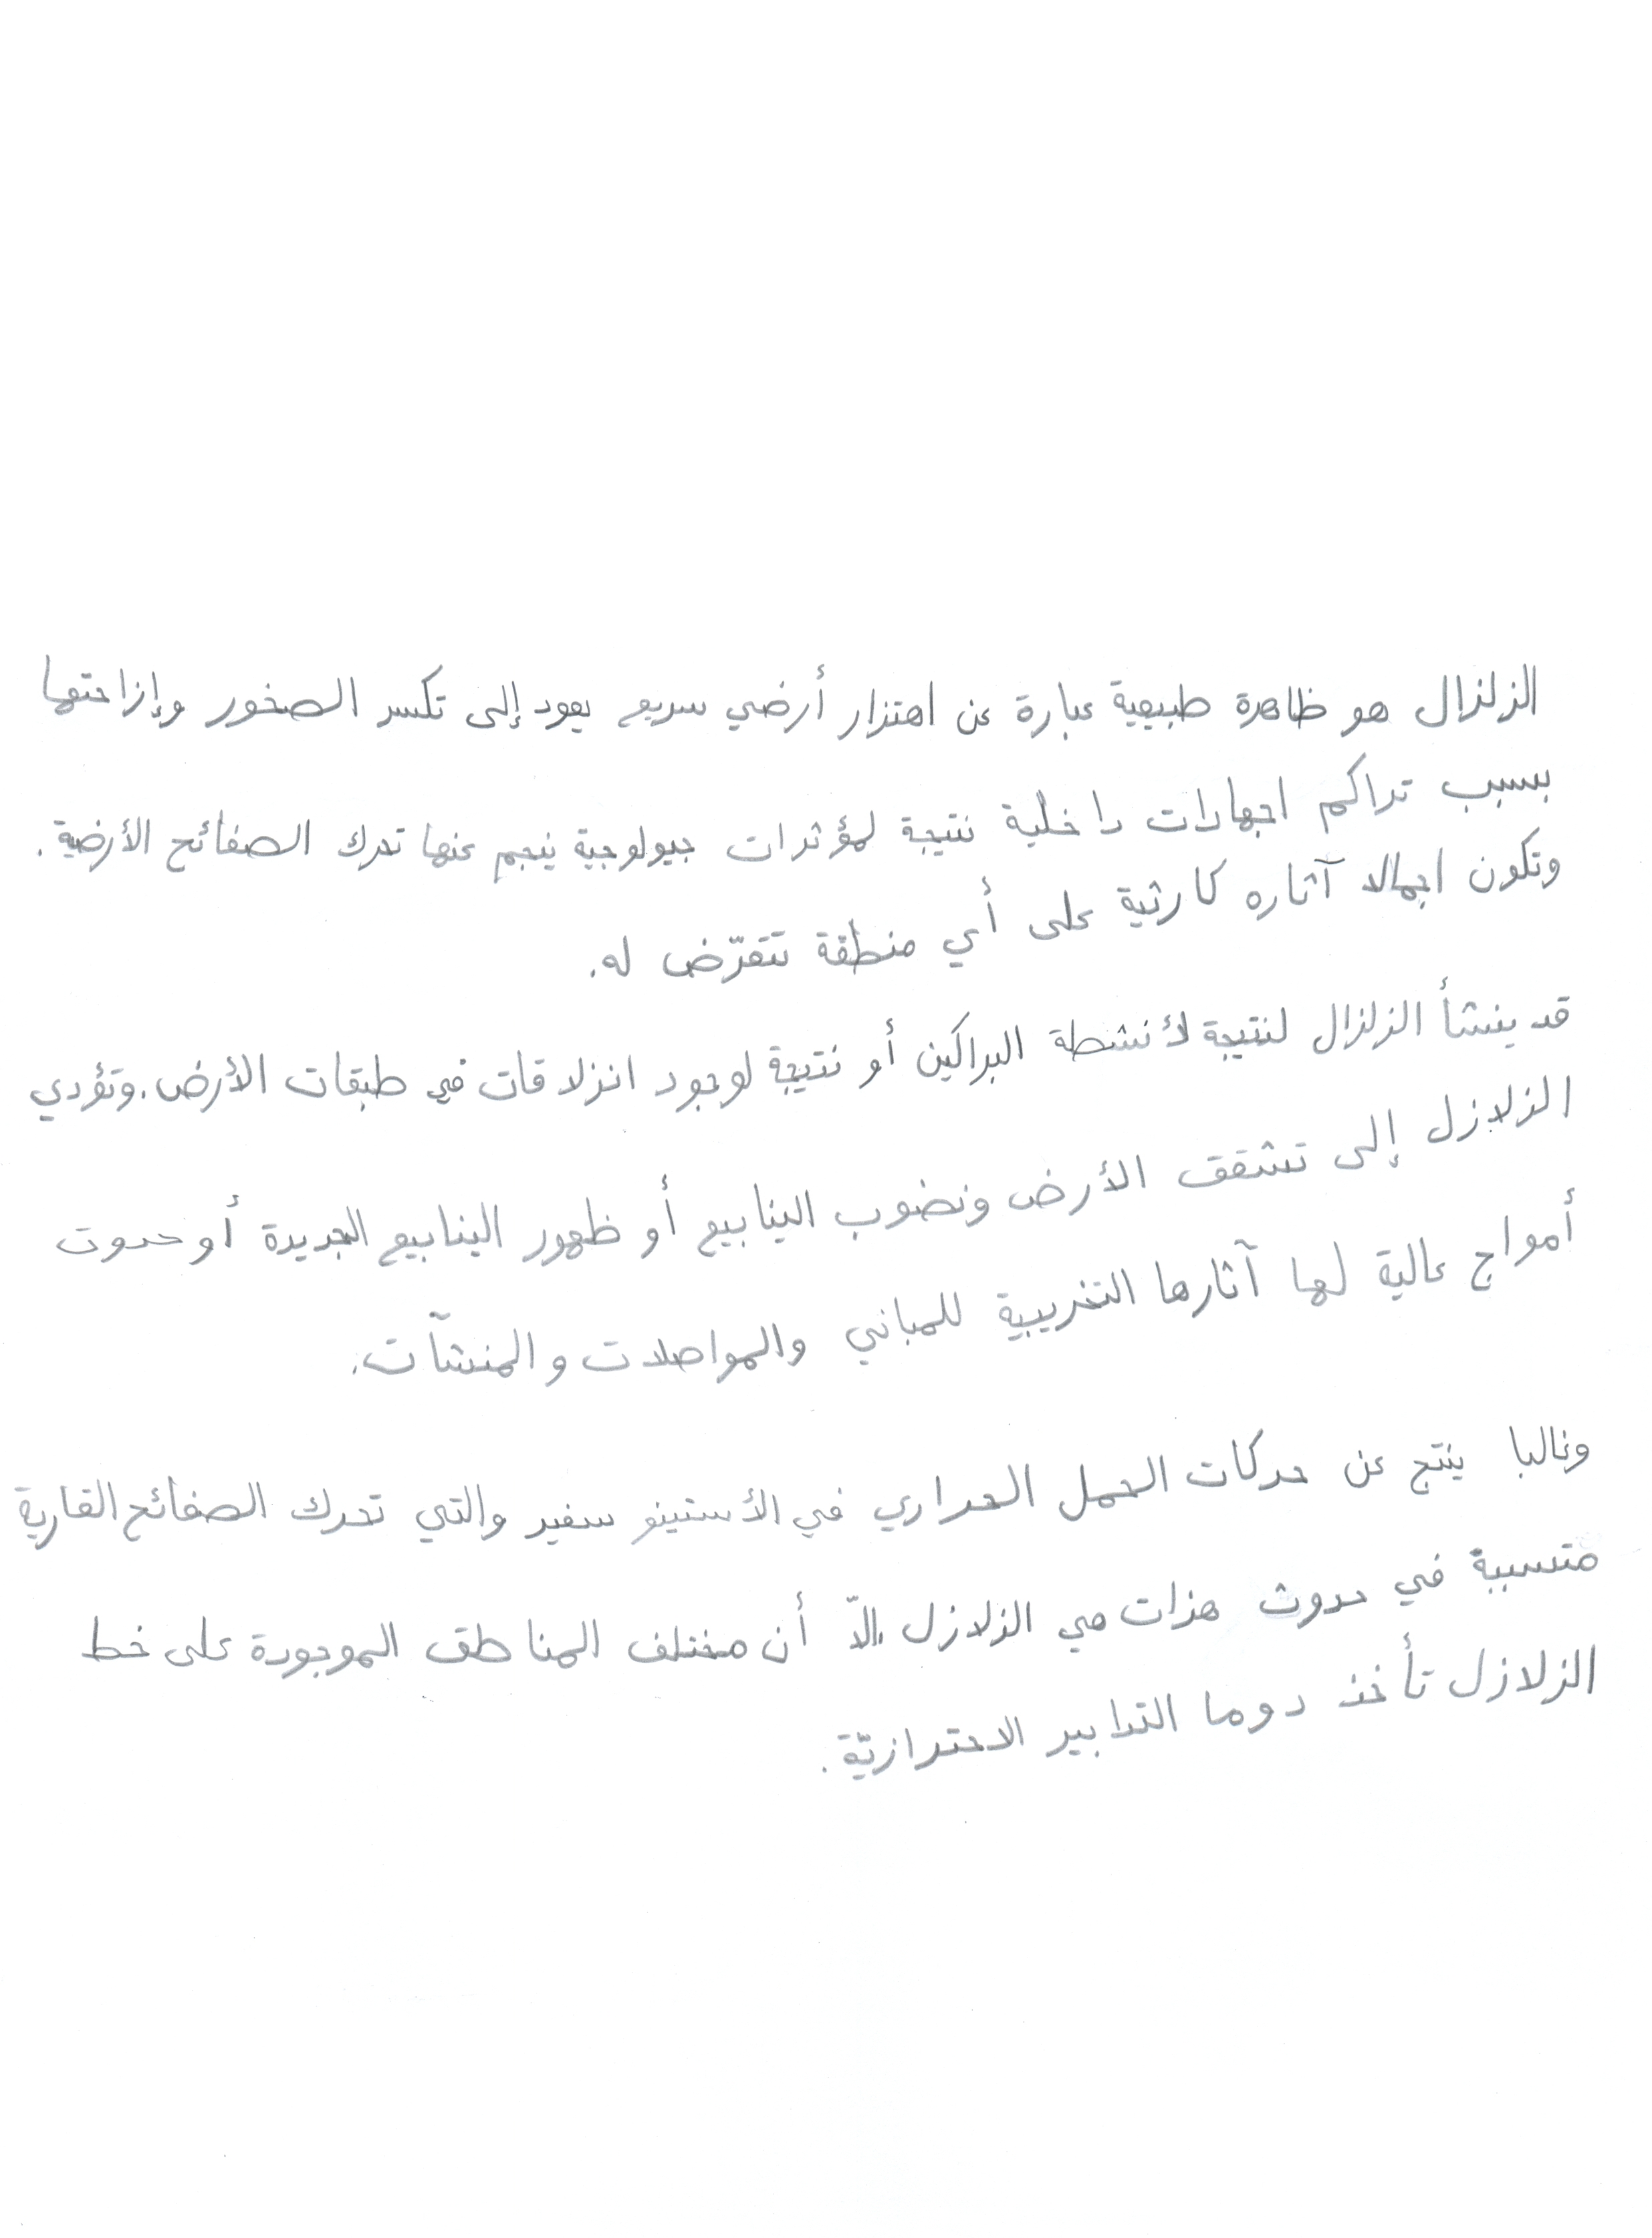 الزلزال هو ظاهرة طبيعية عبارة عن اهتزار أرضي سريع يعود إلى تكسر الصخور وإزاحتها
بسبب تراكم اجهادات داخلية نتيجة لمؤثرات جيولوجية ينجم عنها تحرك الصفائح الأرضية.
وتكون اجمالا آثاره كارثية على أي منطقة تتعرّض له.
قد ينشأ الزلزال لنتيجة لأنشطة البراكين أو نتيجة لوجود انزلاقات في طبقات الأرض. وتؤدي
الزلازل إلى تشقق الأرض ونضوب الينابيع أو ظهور الينابيع الجديدة أو حدوت
أمواج عالية لها آثارها التخريبية للمباني والمواصلات والمنشآت.
وغالبا ينتج عن حركات الحمل الحراري في الأستينو سفير والتي تحرك الصفائح القارية
متسببة في حدوث هزات هي الزلازل. إلاّ أن مختلف المناطق الموجودة على خط
الزلازل تأخذ دوما التدابير الاحترازيّة.